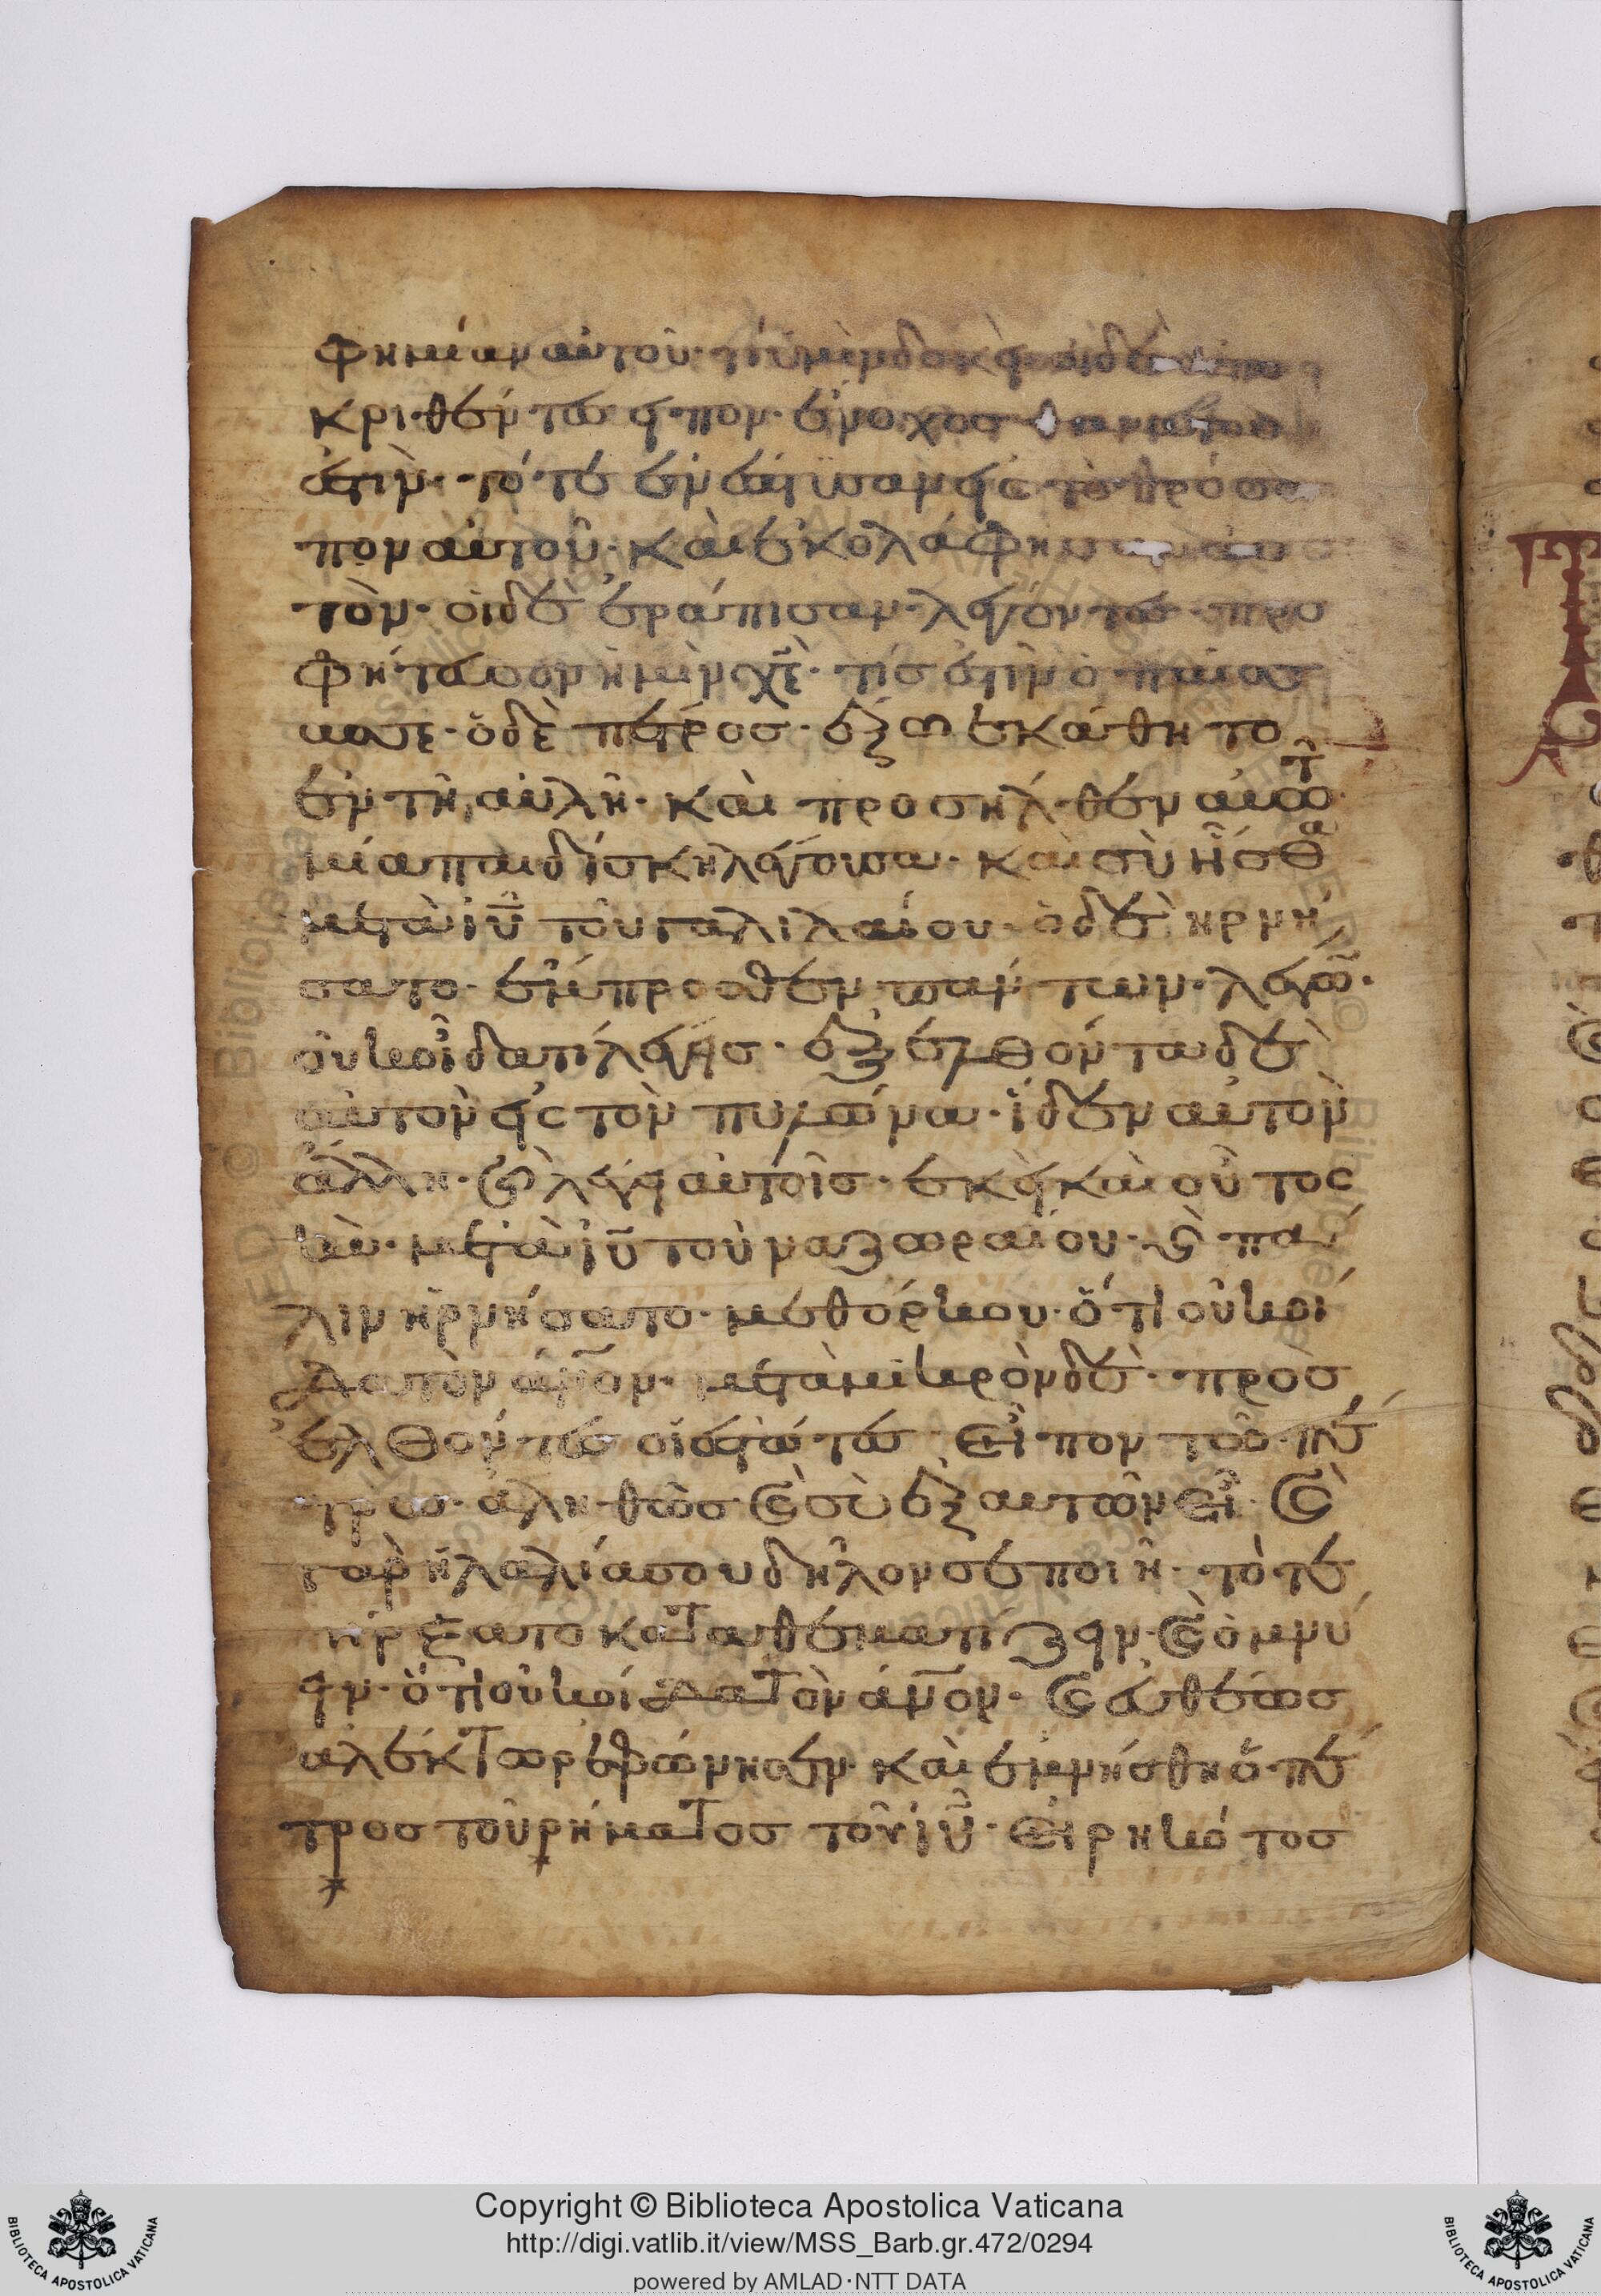 φημίαν αὐτοῦ· τί ὑμὶν δοκεὶ· οἱ δὲ ἀπο
κριθέντες εἶπον· ἔνοχος θανάτου
ἐστὶν· τότε ἐνέπτυσαν εἰς τὸ πρόσω
πον αὐτοῦ· καὶ ἐκολάφησαν αὐ
τὸν· οἱ δὲ ἐράπισαν λέγοντες προ
φήτευσον ἡμὶν χ̅ε̅· τίς ἐστὶν ὁ παίσ
ασε· ὁ δὲ πέτρος· ἔξω ἐκάθητο
ἐν τῆ αὐλῆ· καὶ προσηλθεν αυτῶ
μία παιδίσκη λέγουσα· καὶ σὺ ἦσθα
μετὰ ἰ̅υ̅ τοῦ γαλιλαίου· ὁ δὲ ἠρνή
σατο· ἔμπροσθεν παντων· λέγω̅·
οὐκ οἶδα τί λέγεις· ἐξελθόντα δὲ
αὐτὸν εἰς τὸν πυλῶνα· ἴδεν αὐτὸν
ἄλλη· κ̀ λέγει αὐτοῖς· ἐκεὶ καὶ οὗτος
ἦν· μετὰ ἰ̅υ̅ τοῦ ναζωραίου· κ̀ πά
λιν ἠρνήσατο· μεθόρκου· ὅτι οὐκ οί
δα τὸν α̅ν̅ο̅ν· μετὰ μικρὸν δὲ· προσ
ελθόντες οἱ ἑστῶτες· εἶπον τῶ πέ
τρω· ἀληθῶς κ̀ σὺ ἐξ αυτῶν εἶ· κ̀
γὰρ ἡ λαλία σου δῆλον σε ποιῆ· τότε
ήρξατο καταθεματίζειν· κ̀ ὀμνύ
ειν· ὅτι οὐκ οίδα τὸν α̅ν̅ο̅ν· κ̀ εὐθέως
ἀλέκτωρ ἐφώνησεν· καὶ ἐμνήσθη ὁ πέ
τρος τοῦ ρήματος τοῦ ἰ̅υ̅· εἰρηκότος
Copyright © Biblioteca Apostolica Vaticana
http://digi.vatlib.it/view/MSS_Barb.gr.472/0294
powered by AMLAD·NTT DATA
BIBLIOTECA APOSTOLICA VATICANA
BIBLIOTECA APOSTOLICA VATICANA